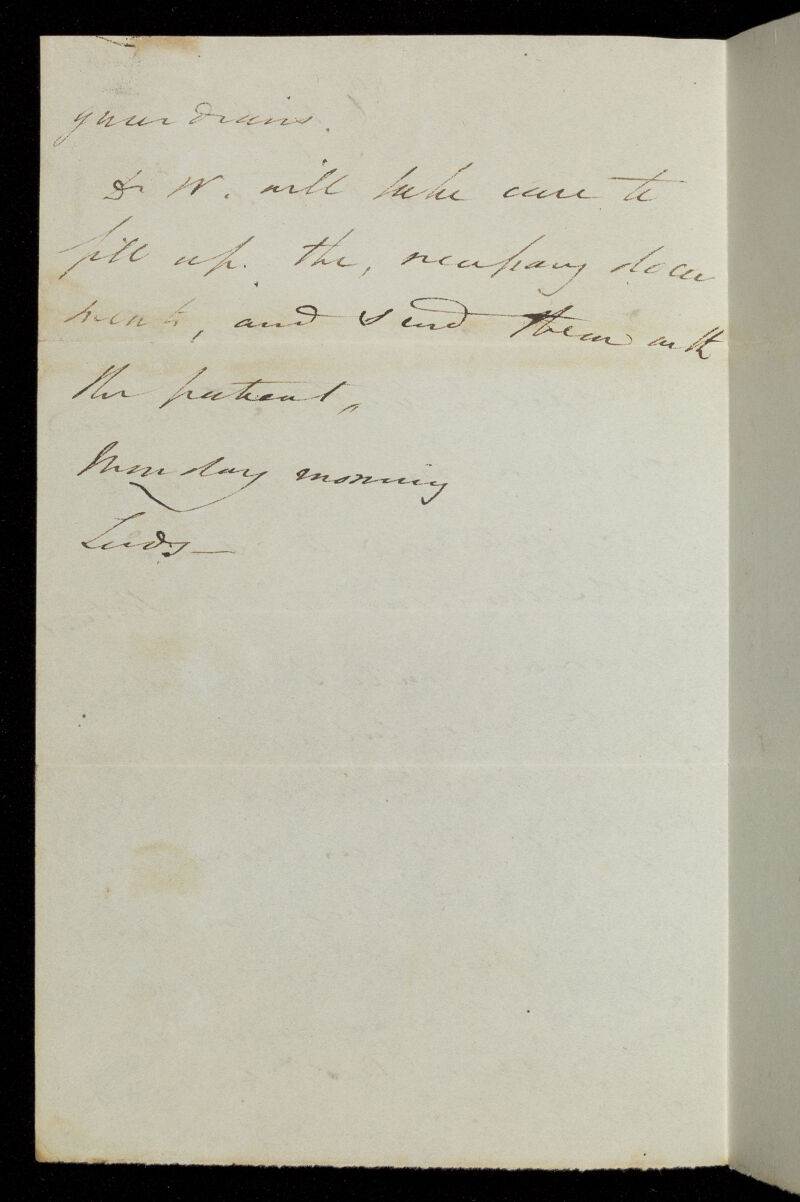 guardians.
Dr W. will take care to
fill up. the, necessary docu
ments, and send them with
the patient,,
Monday morning
Leeds —